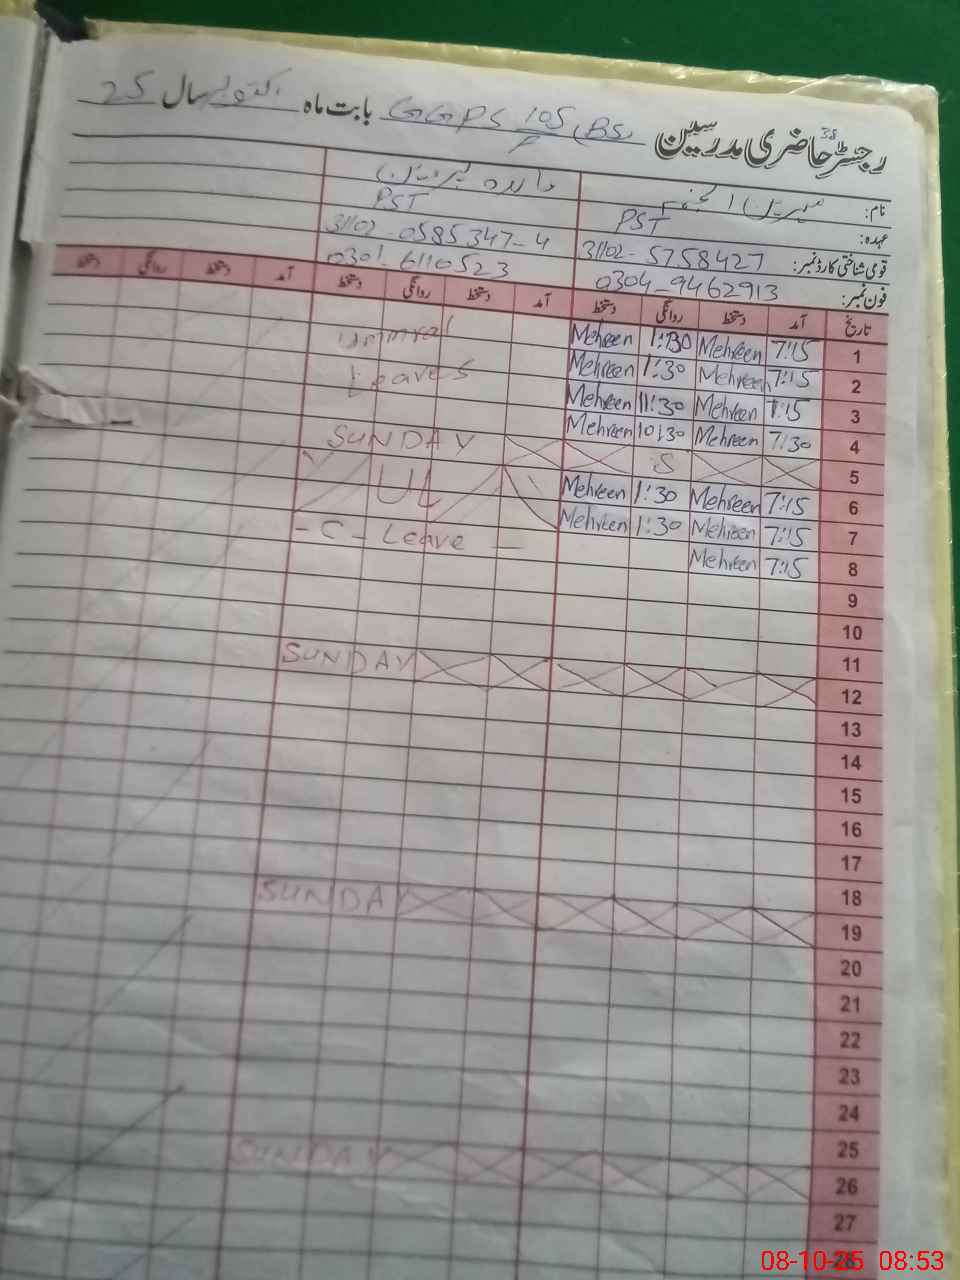 رجسٹر حاضری مدرسین GGPS 105/F (BS) بابت ماہ اکتوبر سال 25
نام:
عہدہ: PST PST
قومی شناختی کارڈ نمبر: 31102-5758427 31102-0585347-4
فون نمبر: 0304-9462913 0301-6110523
تاریخ آمد دستخط روانگی دستخط آمد دستخط روانگی دستخط آمد دستخط روانگی دستخط
1 7:15 Mehreen 1:30 Mehreen
2 7:15 Mehreen 1:30 Mehreen
Leaves
3 7:15 Mehreen 11:30 Mehreen
4 7:30 Mehreen 10:30 Mehreen
5 S SUNDAY
6 7:15 Mehreen 1:30 Mehreen
UL
7 7:15 Mehreen 1:30 Mehreen
8 7:15 Mehreen
- C - Leave -
9
10
11
12 SUNDAY
13
14
15
16
17
18
19 SUNDAY
20
21
22
23
24
25
26 SUNDAY
27
28
08-10-25 08:53